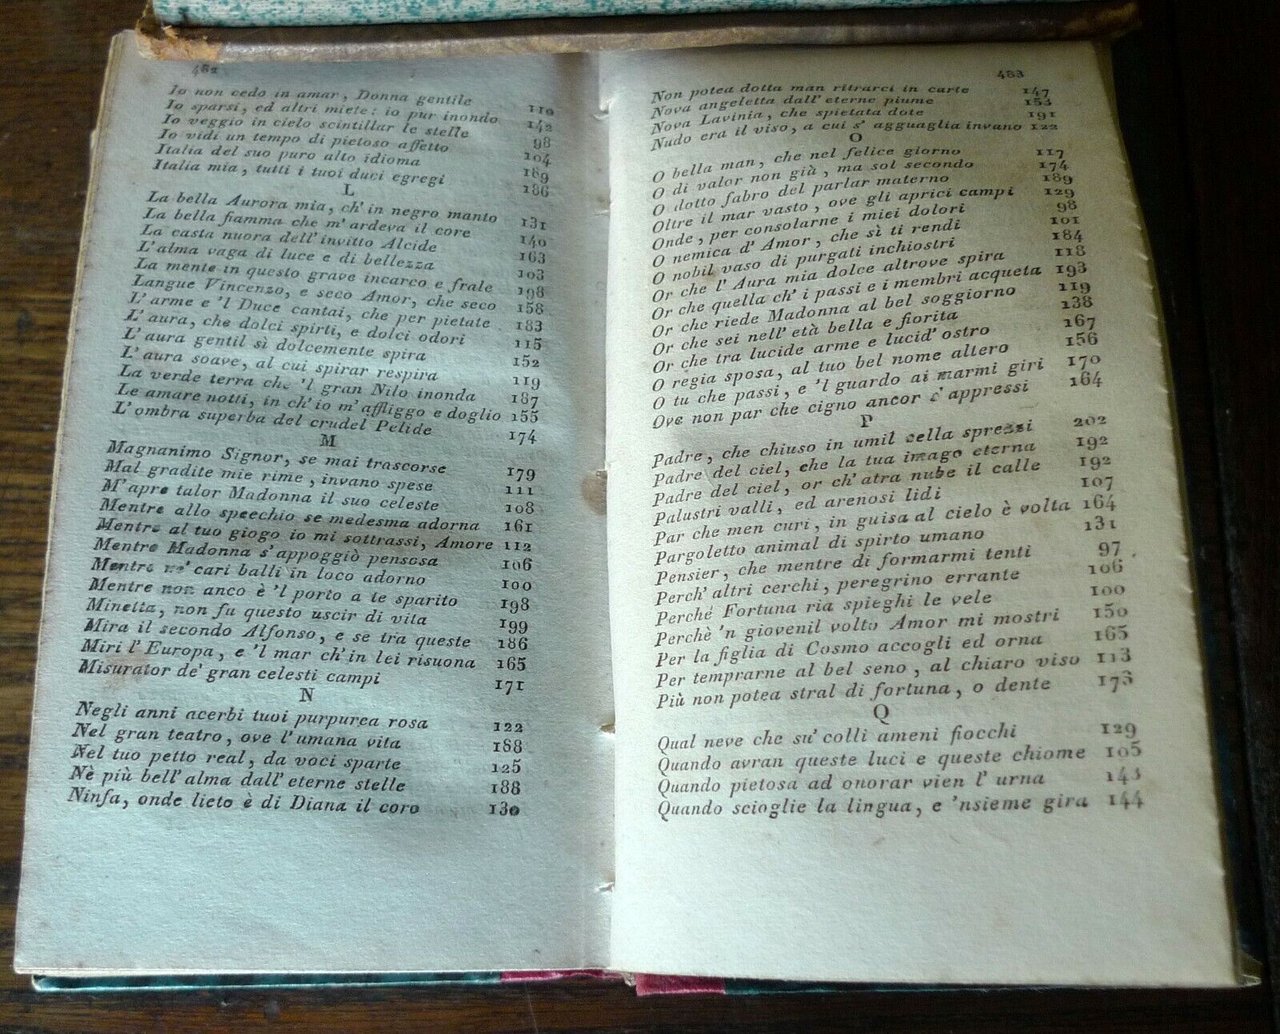 482
Io non cedo in amar, Donna gentile 110
Io sparsi, ed altri miete: io pur inondo 142
Io veggio in cielo scintillar le stelle 98
Io vidi un tempo di pietoso affetto 104
Italia del suo puro alto idioma 189
Italia mia, tutti i tuoi duci egregi 186
L
La bella Aurora mia, ch' in negro manto 131
La bella fiamma che m' ardeva il core 140
La casta nuora dell' invitto Alcide 163
L' alma vaga di luce e di bellezza 103
La mente in questo grave incarco e frale 198
Langue Vincenzo, e seco Amor, che seco 158
L' arme e 'l Duce cantai, che per pietate 183
L' aura, che dolci spirti, e dolci odori 115
L' aura gentil sì dolcemente spira 152
L' aura soave, al cui spirar respira 119
La verde terra che 'l gran Nilo inonda 187
Le amare notti, in ch' io m' affliggo e doglio 155
L' ombra superba del crudel Pelide 174
M
Magnanimo Signor, se mai trascorse 179
Mal gradite mie rime, invano spese 111
M' apre talor Madonna il suo celeste 108
Mentre allo specchio se medesma adorna 161
Mentre al tuo giogo io mi sottrassi, Amore 112
Mentre Madonna s' appoggiò pensosa 106
Mentre ne' cari balli in loco adorno 100
Mentre non anco è 'l porto a te sparito 198
Minetta, non fu questo uscir di vita 199
Mira il secondo Alfonso, e se tra queste 186
Miri l' Europa, e 'l mar ch' in lei risuona 165
Misurator de' gran celesti campi 171
N
Negli anni acerbi tuoi purpurea rosa 122
Nel gran teatro, ove l' umana vita 188
Nel tuo petto real, da voci sparte 125
Nè più bell' alma dall' eterne stelle 188
Ninfa, onde lieto è di Diana il coro 130
483
Non potea dotta man ritrarci in carte 147
Nova angeletta dall' eterne piume 153
Nova Lavinia, che spietata dote 191
Nudo era il viso, a cui s' agguaglia invano 122
O
O bella man, che nel felice giorno 117
O di valor non già, ma sol secondo 174
O dotto fabro del parlar materno 189
Oltre il mar vasto, ove gli aprici campi 129
Onde, per consolarne i miei dolori 98
O nemica d' Amor, che sì ti rendi 101
O nobil vaso di purgati inchiostri 184
Or che l' Aura mia dolce altrove spira 118
Or che quella ch' i passi e i membri acqueta 193
Or che riede Madonna al bel soggiorno 119
Or che sei nell' età bella e fiorita 138
Or che tra lucide arme e lucid' ostro 167
O regia sposa, al tuo bel nome altero 156
O tu che passi, e 'l guardo ai marmi giri 170
Ove non par che cigno ancor s' appressi 164
P
Padre, che chiuso in umil cella sprezzi 202
Padre del ciel, che la tua imago eterna 192
Padre del ciel, or ch' atra nube il calle 192
Palustri valli, ed arenosi lidi 107
Par che men curi, in guisa al cielo è volta 164
Pargoletto animal di spirto umano 131
Pensier, che mentre di formarmi tenti 97
Perch' altri cerchi, peregrino errante 106
Perchè Fortuna ria spieghi le vele 100
Perchè 'n giovenil volto Amor mi mostri 150
Per la figlia di Cosmo accogli ed orna 165
Per temprarne al bel seno, al chiaro viso 113
Più non potea stral di fortuna, o dente 173
Q
Qual neve che su' colli ameni fiocchi 129
Quando avran queste luci e queste chiome 105
Quando pietosa ad onorar vien l' urna 143
Quando scioglie la lingua, e 'nsieme gira 144